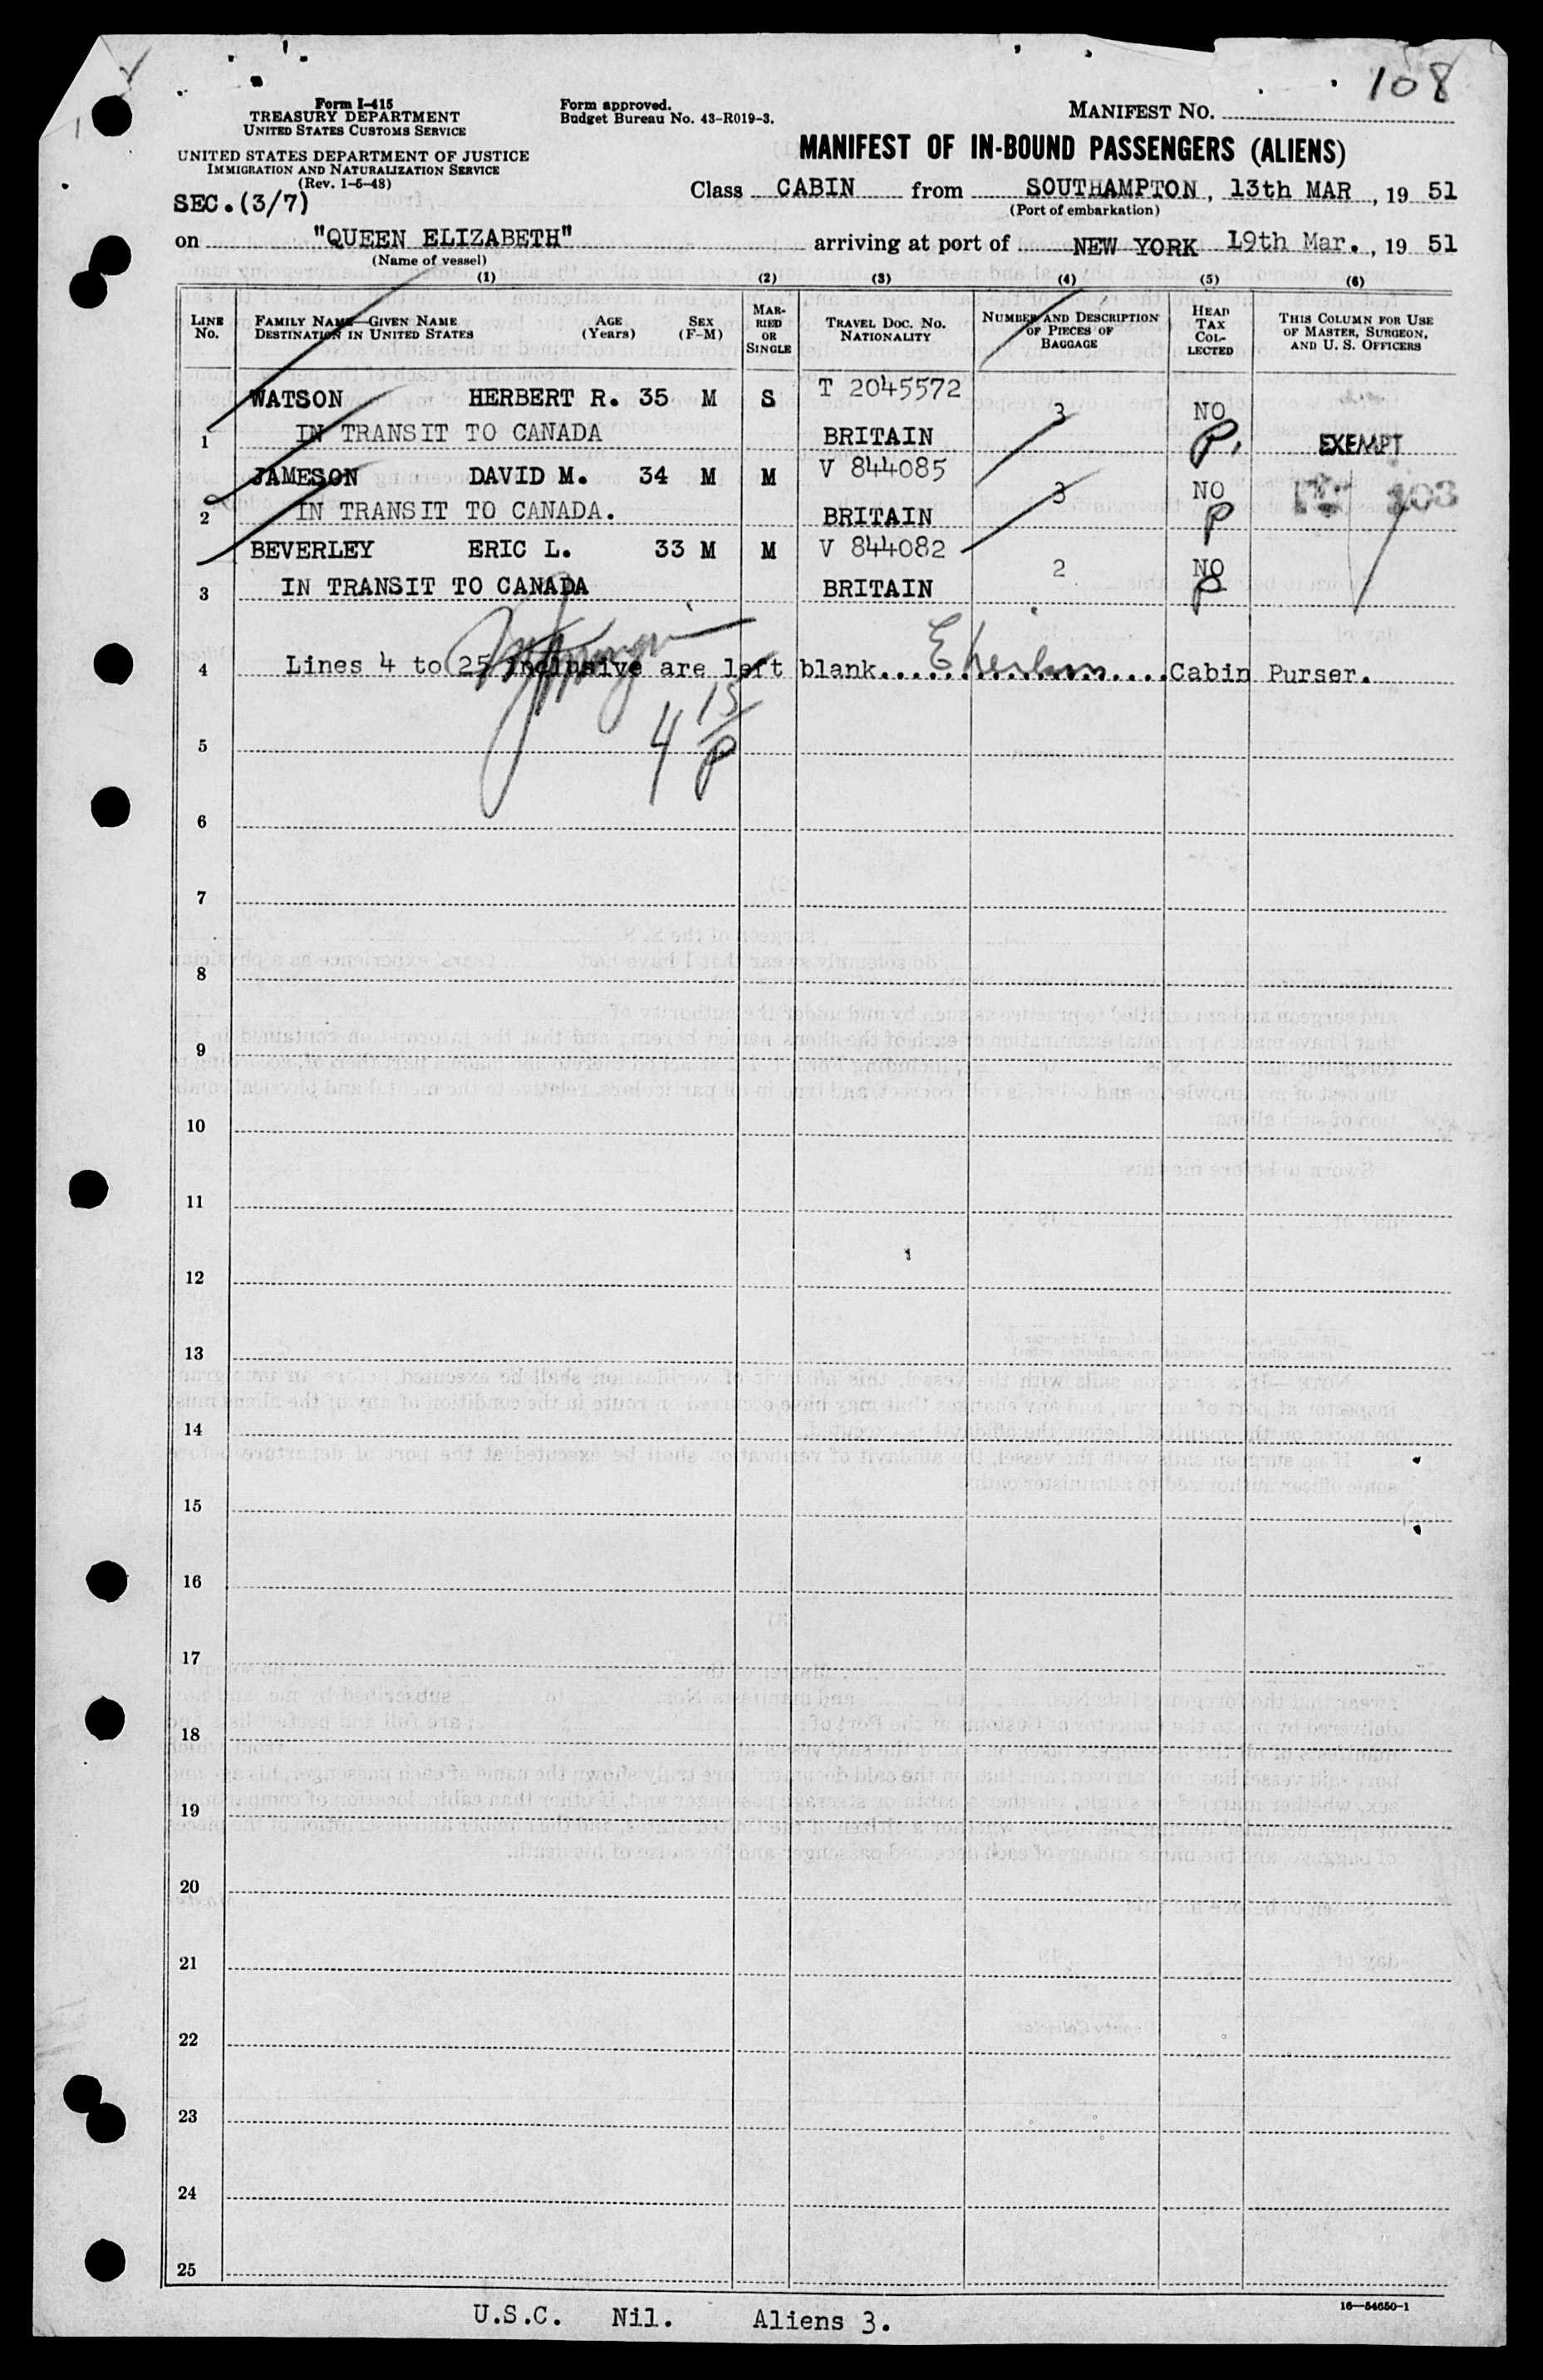 108
Form I-415
TREASURY DEPARTMENT
UNITED STATES CUSTOMS SERVICE
Form approved.
Budget Bureau No. 43-R019-3.
MANIFEST NO.
UNITED STATES DEPARTMENT OF JUSTICE
IMMIGRATION AND NATURALIZATION SERVICE
(Rev. 1-5-48)
MANIFEST OF IN-BOUND PASSENGERS (ALIENS)
SEC.(3/7)
Class CABIN from SOUTHAMPTON, 13th MAR, 19 51
(Port of embarkation)
on "QUEEN ELIZABETH" arriving at port of NEW YORK 19th Mar., 19 51
(Name of vessel)
(1) (2) (3) (4) (5) (6)
LINE No.
FAMILY NAME—GIVEN NAME
DESTINATION IN UNITED STATES
AGE (Years)
SEX (F-M)
MARRIED OR SINGLE
TRAVEL DOC. NO. NATIONALITY
NUMBER AND DESCRIPTION OF PIECES OF BAGGAGE
HEAD TAX COLLECTED
THIS COLUMN FOR USE OF MASTER, SURGEON, AND U. S. OFFICERS
WATSON HERBERT R. 35 M S T 2045572 3 NO
1 IN TRANSIT TO CANADA BRITAIN P. EXEMPT
JAMESON DAVID M. 34 M M V 844085 3 NO 103
2 IN TRANSIT TO CANADA. BRITAIN P
BEVERLEY ERIC L. 33 M M V 844082 2 NO
3 IN TRANSIT TO CANADA BRITAIN P
4 Lines 4 to 25 inclusive are left blank....................Cabin Purser.
4 15/P
5
6
7
8
9
10
11
12
13
14
15
16
17
18
19
20
21
22
23
24
25
16—54650-1
U.S.C. Nil. Aliens 3.